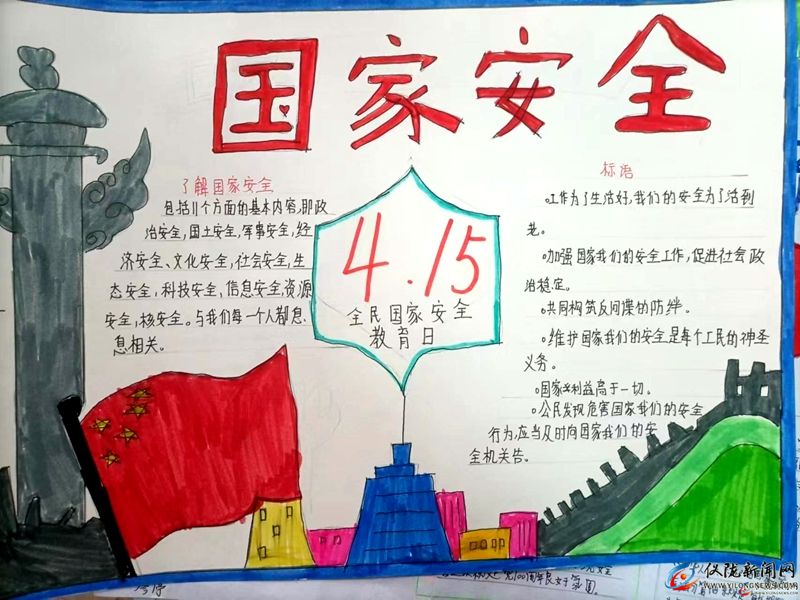 国家安全
了解国家安全
包括11个方面的基本内容,即政
治安全,国土安全,军事安全,经
济安全、文化安全,社会安全,生
态安全,科技安全,信息安全,资源
安全,核安全。与我们每一个人都息
息相关。
4.15
全民国家安全
教育日
标语
工作为了生活好,我们的安全为了活到
老。
加强国家我们的安全工作,促进社会政
治稳定。
共同构筑反间谍的防绊。
维护国家我们的安全是每个工民的神圣
义务。
国家利益高于一切。
公民发现危害国家我们的安全
行为,应当及时向国家我们的安
全机关告。
仪陇新闻网
WWW.YILONGNEWS.COM